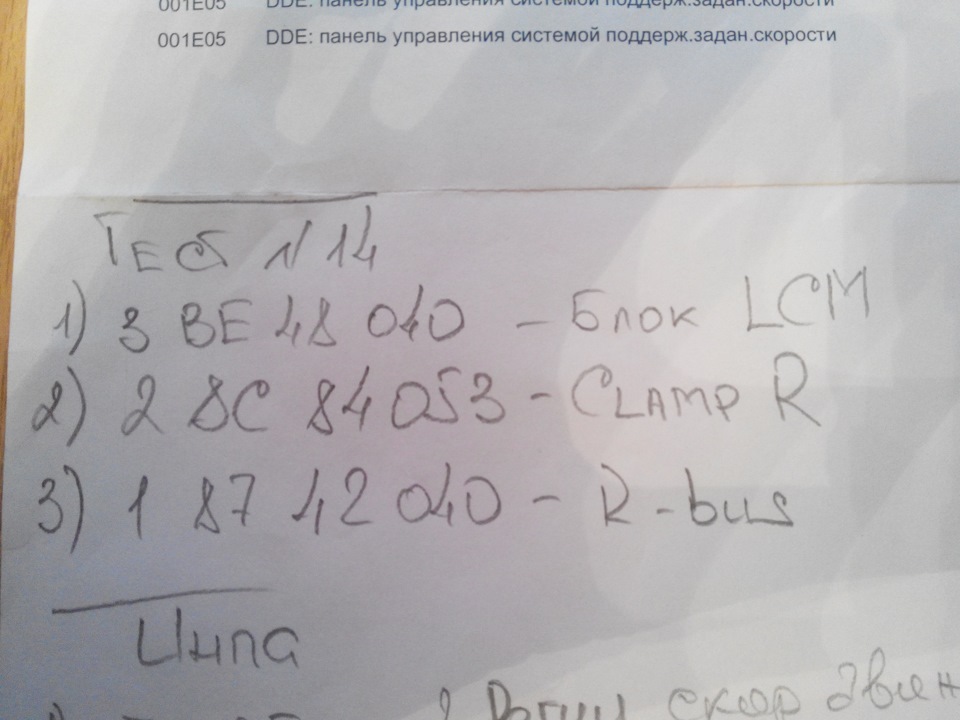 001E05 DDE: панель управления системой поддерж.задан.скорости
001E05 DDE: панель управления системой поддерж.задан.скорости
ТЕСТ N 14
1) 3 BE 48 040 - Блок LCM
2) 2 8C 84 053 - CLAMP R
3) 1 87 42 040 - R-bus
Ципа
скор движ